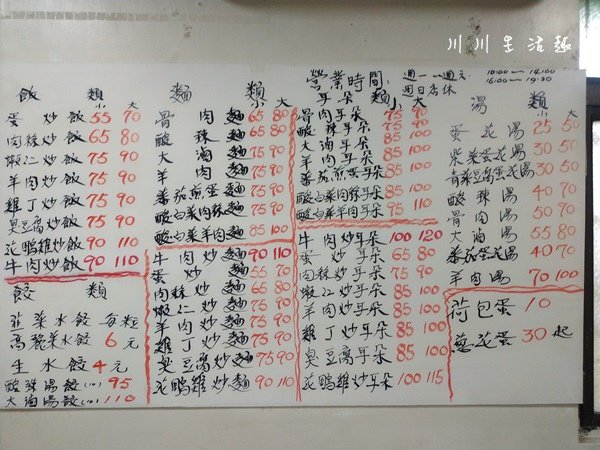 川川生活趣
營業時間:週一~週六 10:00—14:00
週日店休 16:00—19:30
飯類 小 大
蛋炒飯 55 70
肉絲炒飯 65 80
蝦仁炒飯 75 90
羊肉炒飯 75 90
雞丁炒飯 75 90
臭豆腐炒飯 75 90
花鴨雞炒飯 90 110
牛肉炒飯 90 110
餃類
韭菜水餃 每粒
高麗菜水餃 6元
生水餃 4元
酸辣湯餃(10) 95
大滷湯餃(10) 110
麵類 小 大
骨肉麵 65 80
酸辣麵 65 80
大滷麵 75 90
羊肉麵 75 90
番茄煎蛋麵 75 90
酸白菜肉絲麵 75 90
酸白菜羊肉麵 85 100
牛肉炒麵 90 110
蛋炒麵 55 70
肉絲炒麵 65 80
蝦仁炒麵 75 90
羊肉炒麵 75 90
雞丁炒麵 75 90
臭豆腐炒麵 75 90
花鴨雞炒麵 90 110
耳朵類 小 大
骨肉耳朵 75 90
酸辣耳朵 75 90
大滷耳朵 85 100
羊肉耳朵 85 100
番茄煎蛋耳朵 85 100
酸白菜肉絲耳朵 85 100
酸白菜羊肉耳朵 95 110
牛肉炒耳朵 100 120
蛋炒耳朵 65 80
肉絲炒耳朵 75 90
蝦仁炒耳朵 85 100
羊肉炒耳朵 85 100
雞丁炒耳朵 85 100
臭豆腐炒耳朵 85 100
花鴨雞炒耳朵 100 115
湯類 小 大
蛋花湯 25 50
紫菜蛋花湯 30 50
青菜豆腐蛋花湯 30 50
酸辣湯 40 70
骨肉湯 50 70
大滷湯 55 80
番茄蛋花湯 40 70
羊肉湯 70 100
荷包蛋 10
蔥花蛋 30起